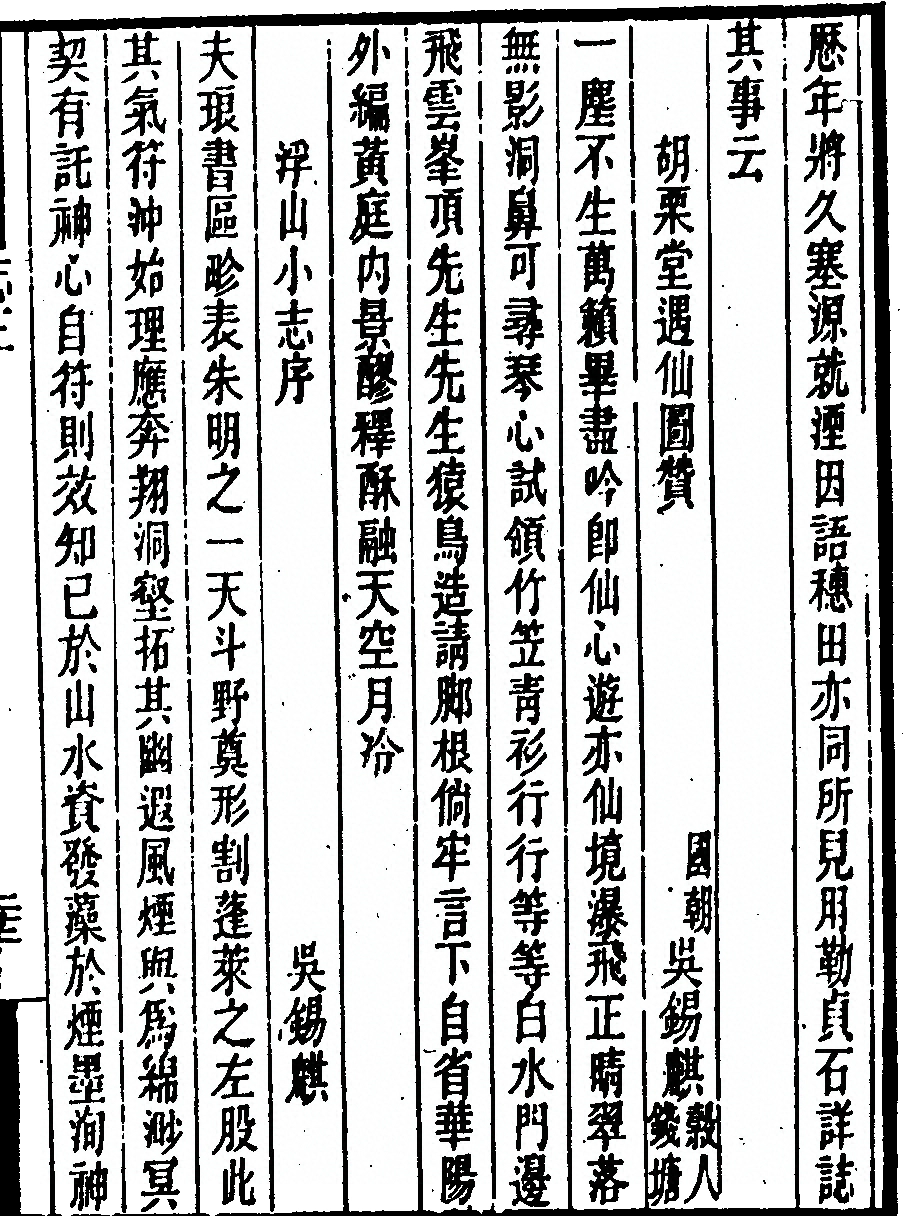 歴年將久塞源就湮因語穗田亦同所見用勒貞石詳誌
其事云
胡栗堂遇仙圖贊 國朝吳錫麒穀人錢塘
一塵不生萬籟畢盡吟卽仙心遊亦仙境瀑飛正晴翠落
無影洞鼻可尋琴心試領竹笠青衫行行等等白水門邊
飛雲峯頂先生先生猿鳥造請脚根倘牢言下自省華陽
外編黃庭内景醪釋酥融天空月冷
浮山小志序 吳錫麒
夫琅書區畛表朱明之一天斗野奠形割蓬萊之左股此
其氣符沖始理應奔翔洞壑拓其幽遐風煙與爲綿渺冥
契有託神心自符則效知已於山水資發藻於煙墨洵神